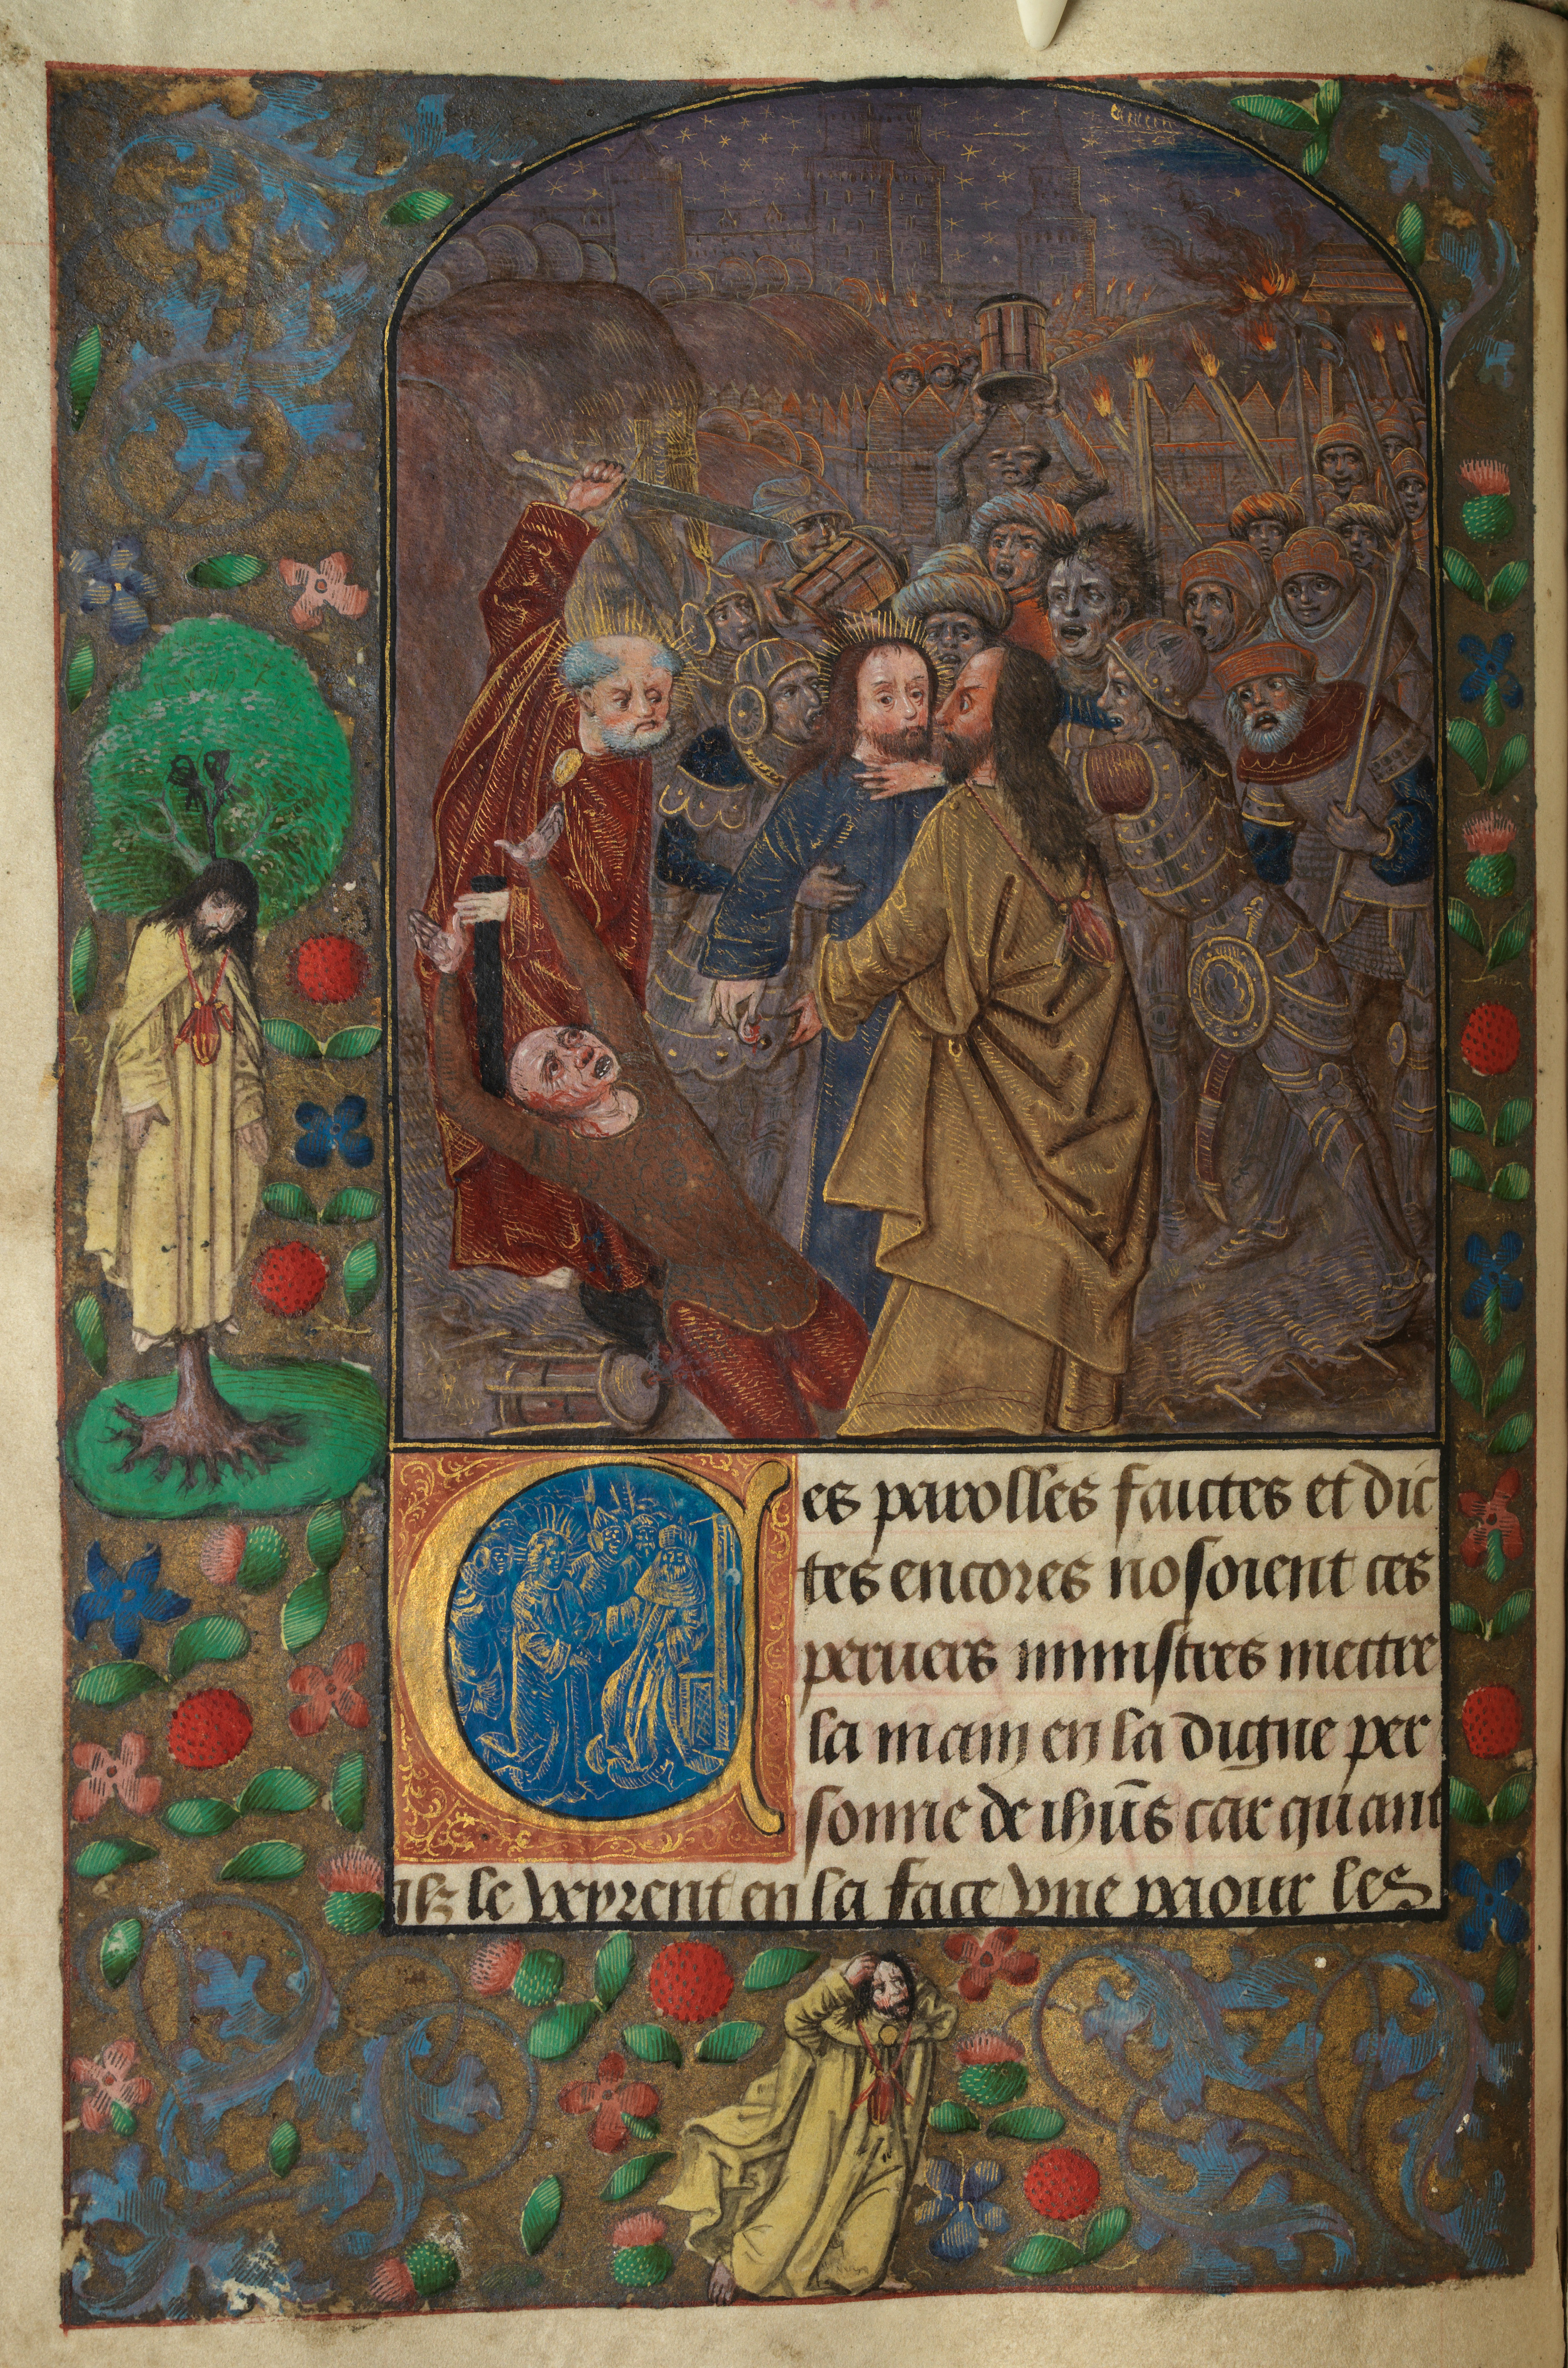 Ces parolles faictes et dic
tes encores nosoient ces
peruers ministres mettre
la main en la digne per
sonne de ihūs car quant
ilz le veyrent en la face vne paour les